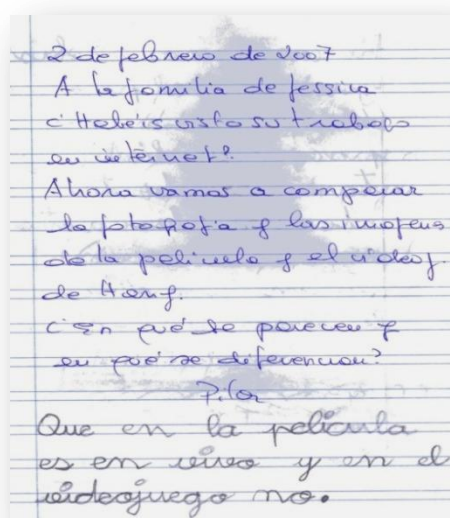 2 de febrero de 2007
A la familia de Jessica
¿Habéis visto su trabajo
en internet?
Ahora vamos a comparar
la fotografía y las imágenes
de la película y el videoj.
de Harry.
¿En qué se parecen y
en qué se diferencian?
Pilar
Que en la película
es en vivo y en el
videojuego no.